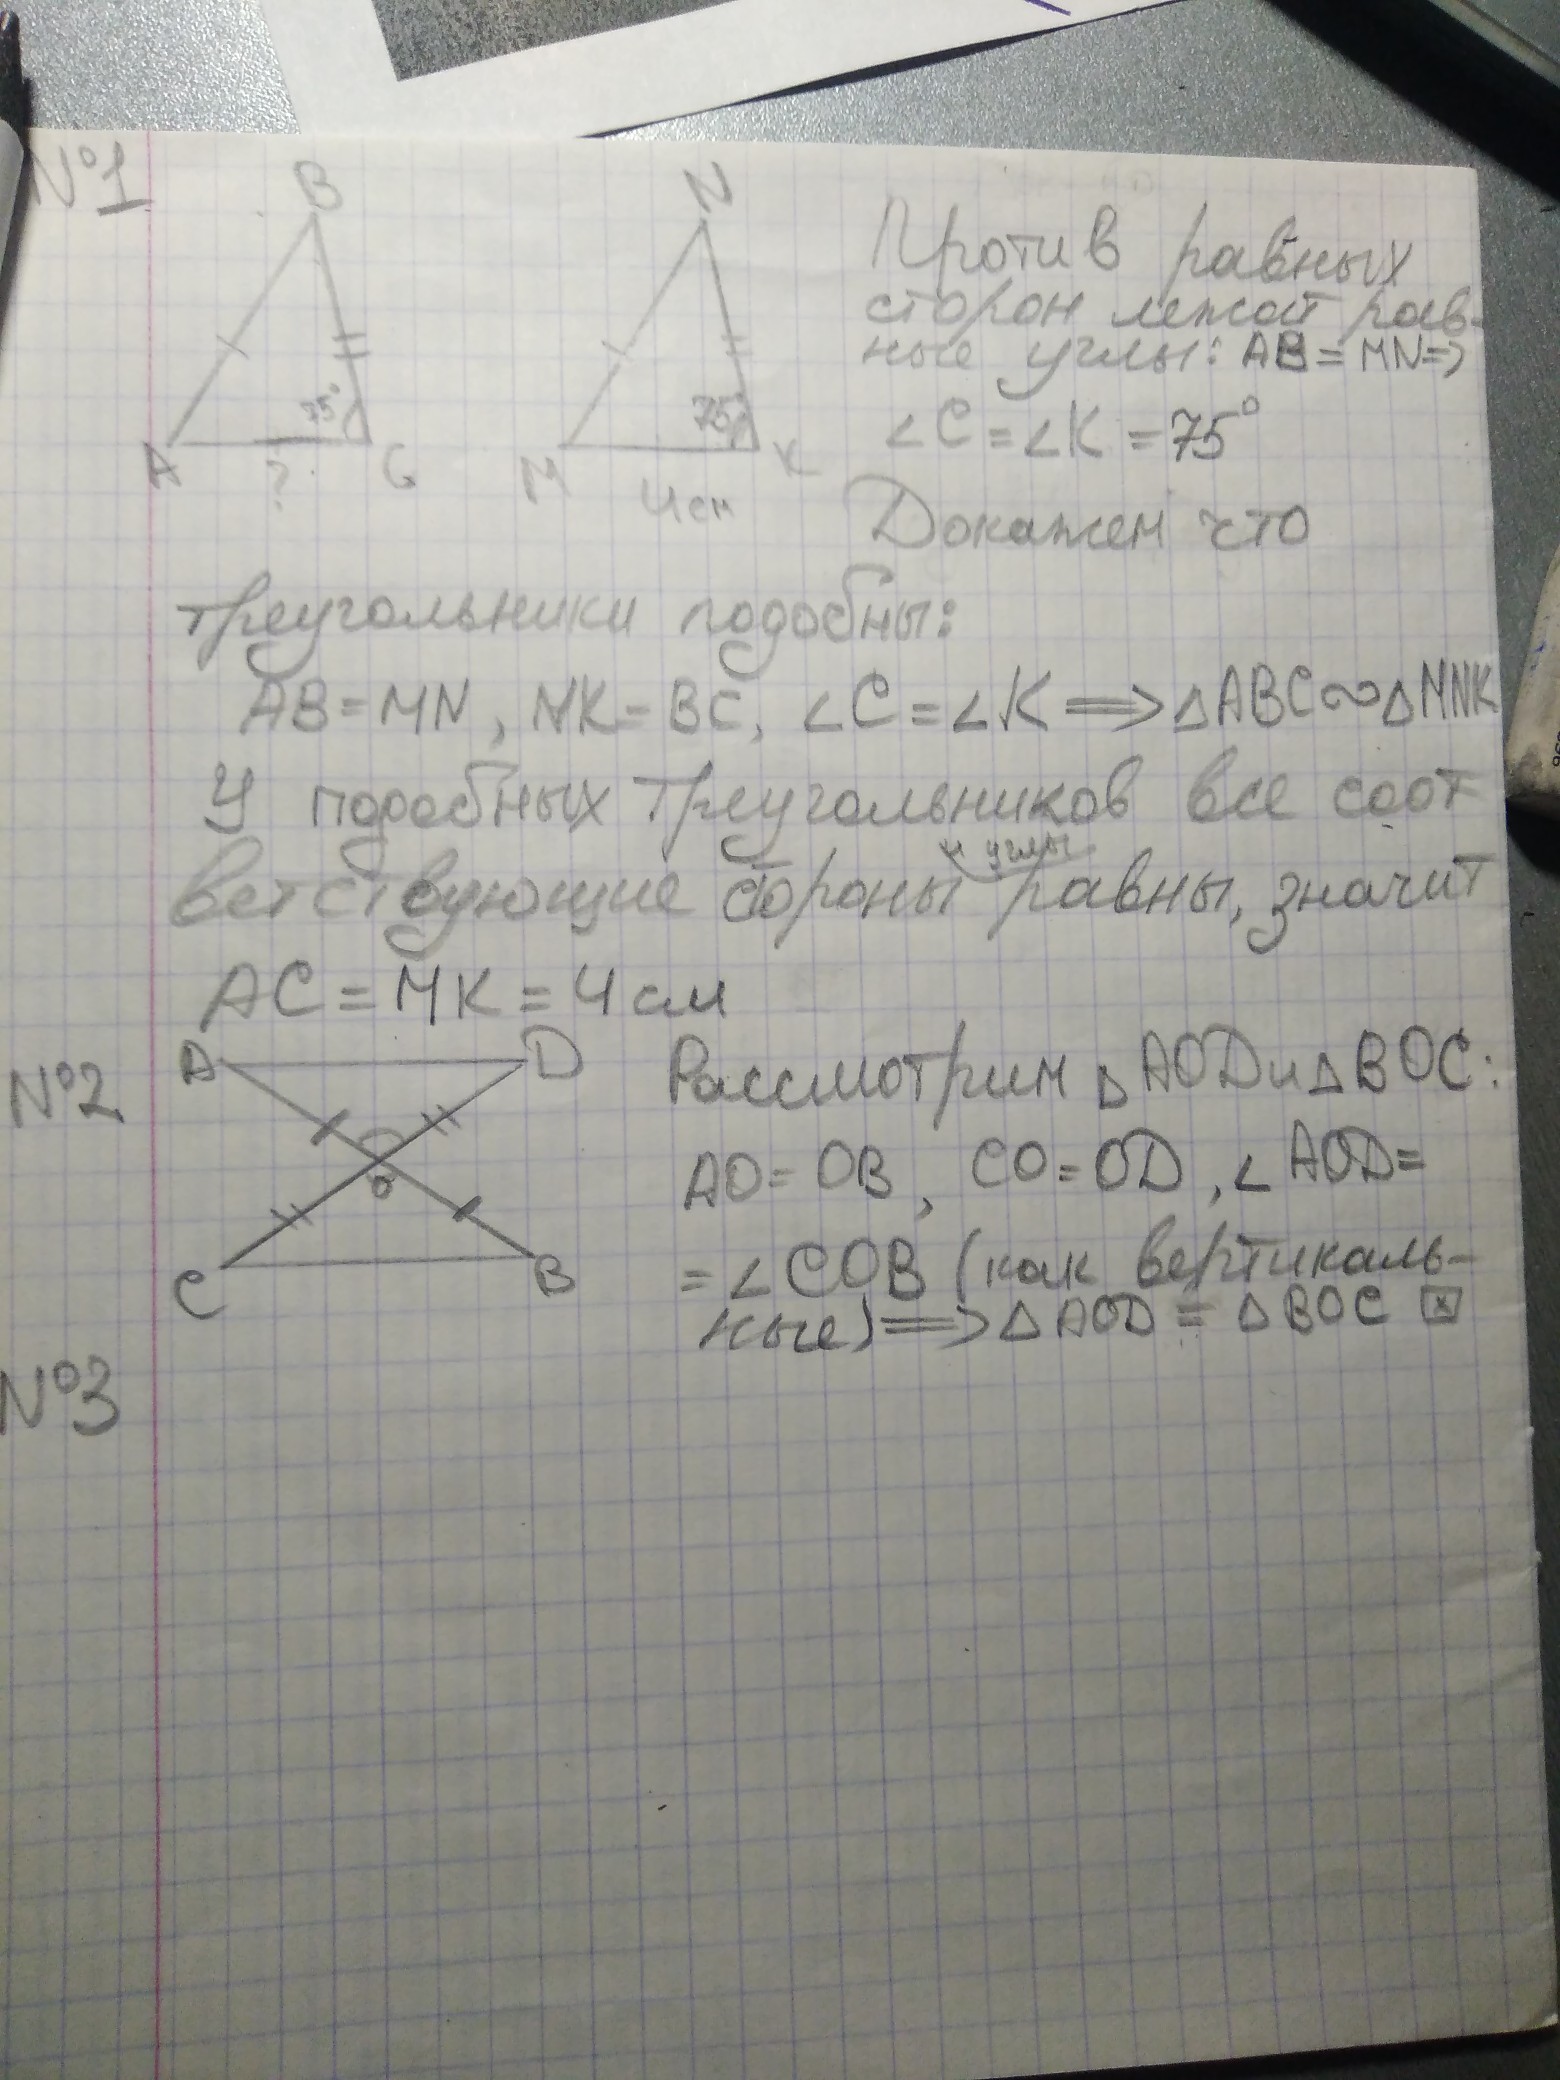 №1
B
N
A
C
?
75°
M
K
4 см
75°
Против равных
сторон лежат рав-
ные углы: AB = MN =>
∠C = ∠K = 75°
Докажем что
треугольники подобны:
AB = MN, NK = BC, ∠C = ∠K => △ABC ∾ △MNK
У подобных треугольников все соот
и углы
ветствующие стороны равны, значит
AC = MK = 4 см
№2
A
D
O
C
B
Рассмотрим △AOD и △BOC:
AO = OB, CO = OD, ∠AOD =
= ∠COB (как вертикаль-
ные) => △AOD = △BOC ☒
№3